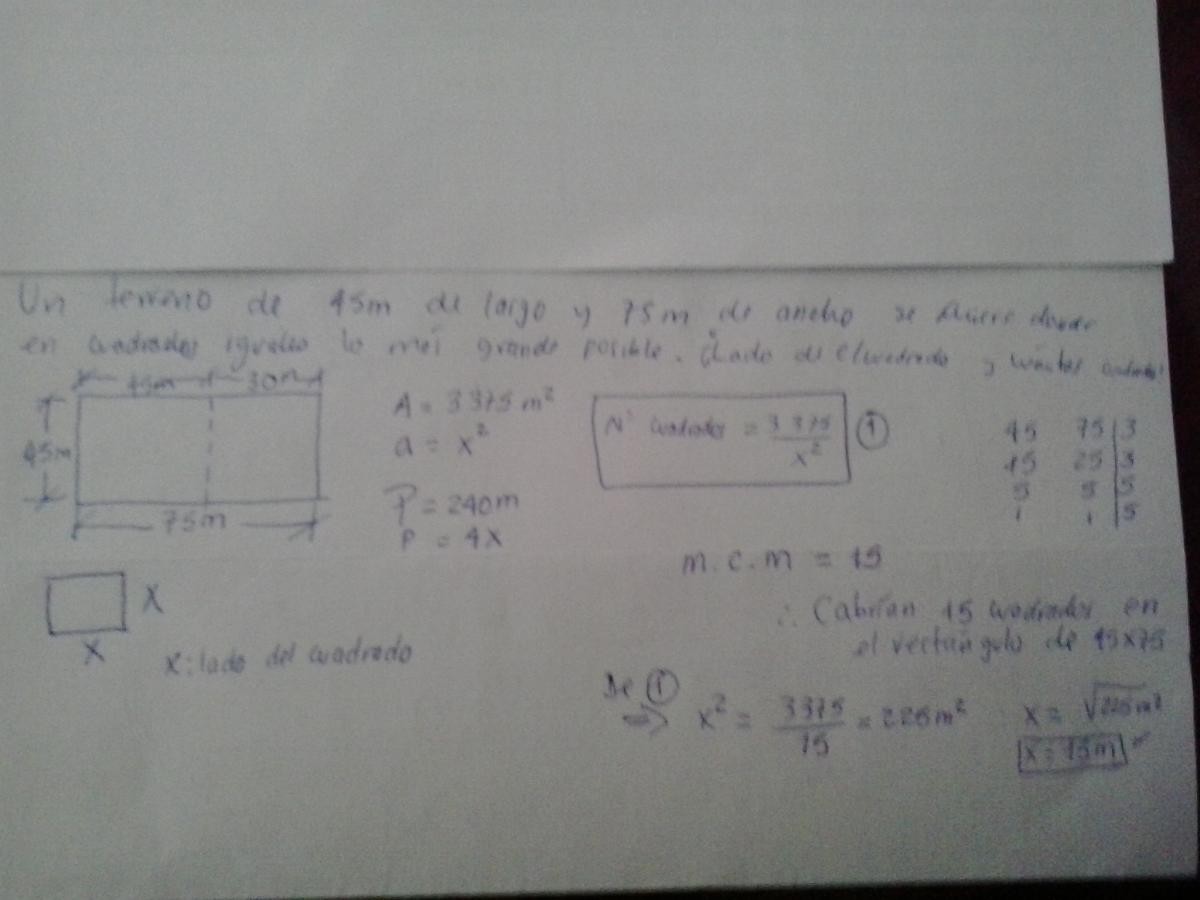 Un terreno de 45m de largo y 75m de ancho se quiere
en cuadrados iguales lo más grande posible. ¿Lado de el cuadrado y cuántos
45m 30m
45m
75m
A = 3375 m²
a = x²
P = 240m
P = 4x
N° cuadrados = 3375/x² ①
45 75 | 3
15 25 | 3
5 5 | 5
1 1 | 5
m.c.m = 15
∴ Cabrían 15 cuadrados en
el rectángulo de 45x75
X
X
X: lado del cuadrado
De ①
⇒ x² = 3375/15 = 225m² x = √225m²
x = 15m